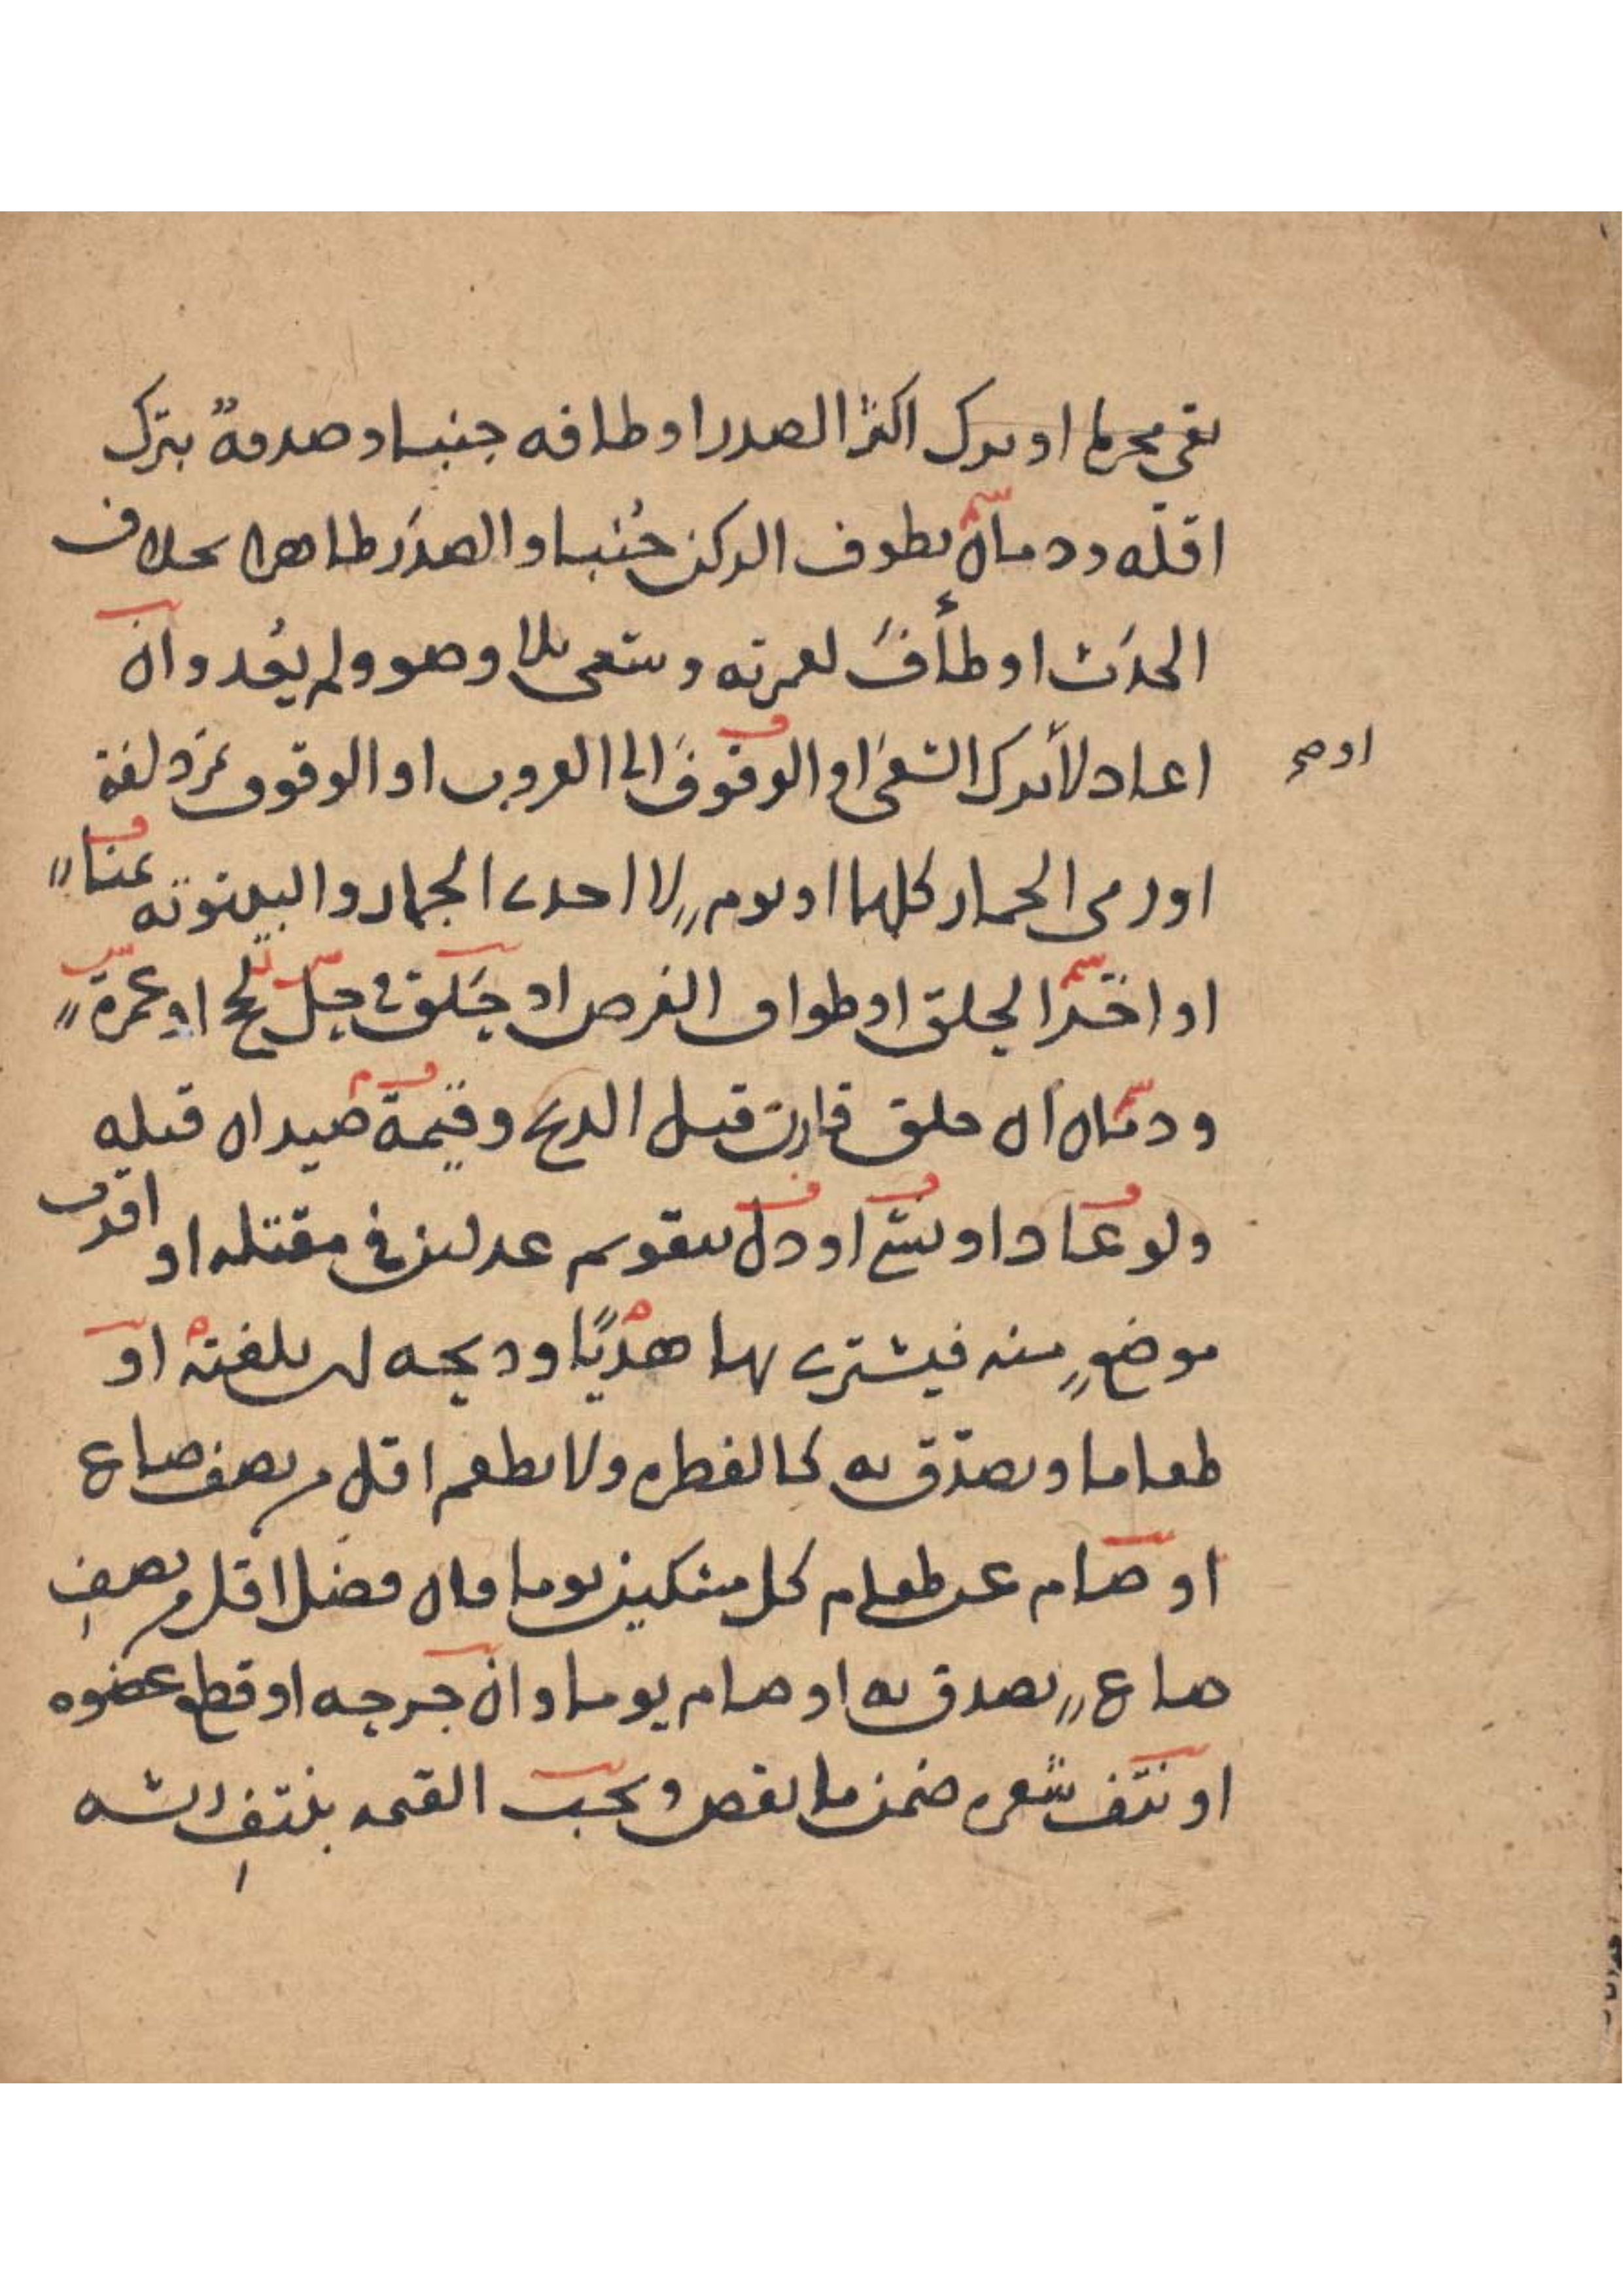 بقي محرما او بترك اكثر الصدر او طافه جنبا وصدقةٌ بترك
اقلّه ودمان بطوف الركن جُنبا والصدَر طاهرا بخلاف
الحدَث او طافَ لعمرته وسَعى بلا وضوء ولم يُعد وان
اعاد لا بترك السَعى او الوقوف الى الغروب او الوقوف بمزدلفة
او صح
او رمى الجمار كلها او يومٍ لا احدى الجمار والبيتوتة بمنا
او اخّر الحلق او طواف الفرض او حَلق في حِلّ لحج او عمرةٍ
ودمان ان حلق قارن قبل الذبح وقيمة صيد ان قتله
ولو عاد او نسى او دل بتقويم عدلين في مقتله او اقرب
موضعٍ منه فيشترى بها هديًا وذبحه ان بلغته او
طعاما وتصدّق به كالفطره ولا يطعم اقل من نصف صاع
او صام عن طعام كل مسكين يوما وان فضل اقل من نصفِ
صاعٍ تصدق به او صام يوما وان جرحه او قطع عضوه
او نتف شعره ضمن ما نقص وتجب القيمه بنتفِ ريشه